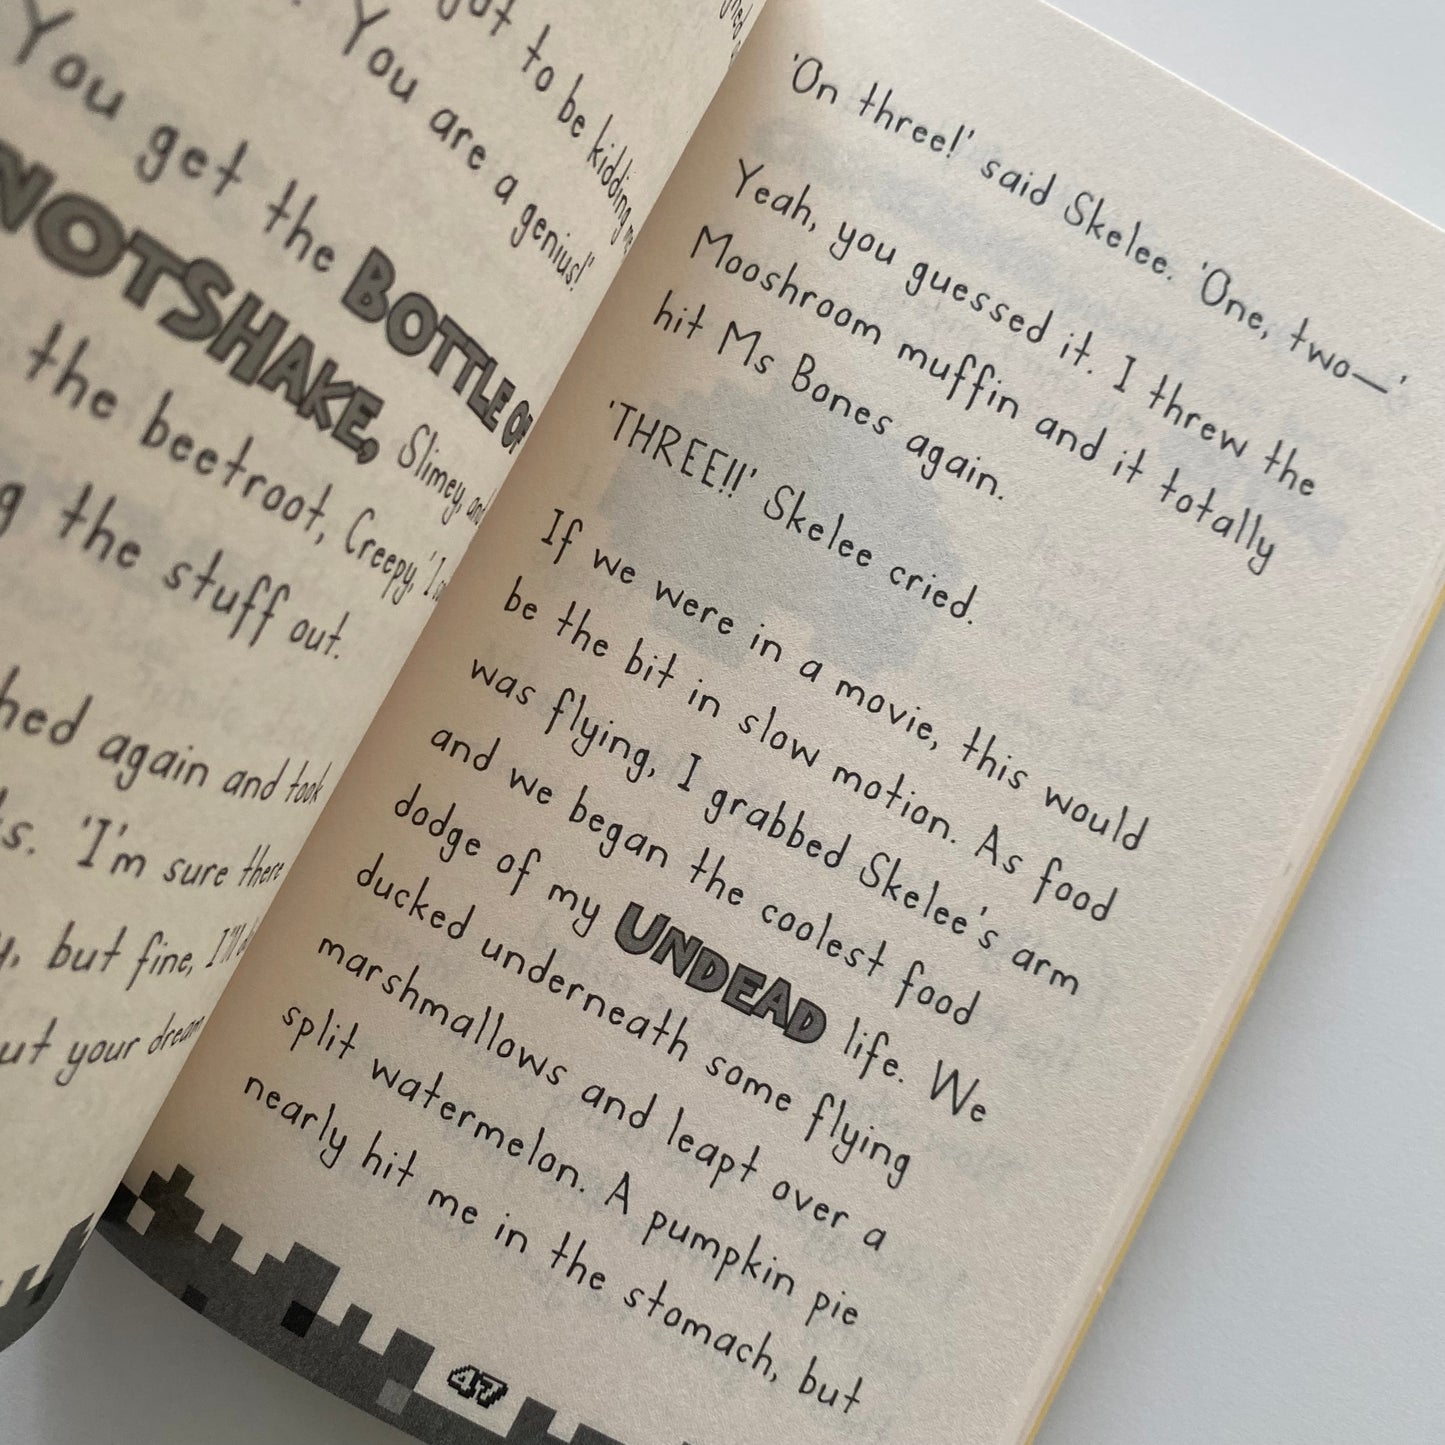 got to be kidding me
You are a genius!'
You get the BOTTLE OF
SNOTSHAKE, Slimey, and
the beetroot, Creepy, 'I
the stuff out.
again and took
'I'm sure there
but fine, I'll
your dream
'On three!' said Skelee. 'One, two—'
Yeah, you guessed it. I threw the
Mooshroom muffin and it totally
hit Ms Bones again.
'THREE!!' Skelee cried.
If we were in a movie, this would
be the bit in slow motion. As food
was flying, I grabbed Skelee's arm
and we began the coolest food
dodge of my UNDEAD life. We
ducked underneath some flying
marshmallows and leapt over a
split watermelon. A pumpkin pie
nearly hit me in the stomach, but
47